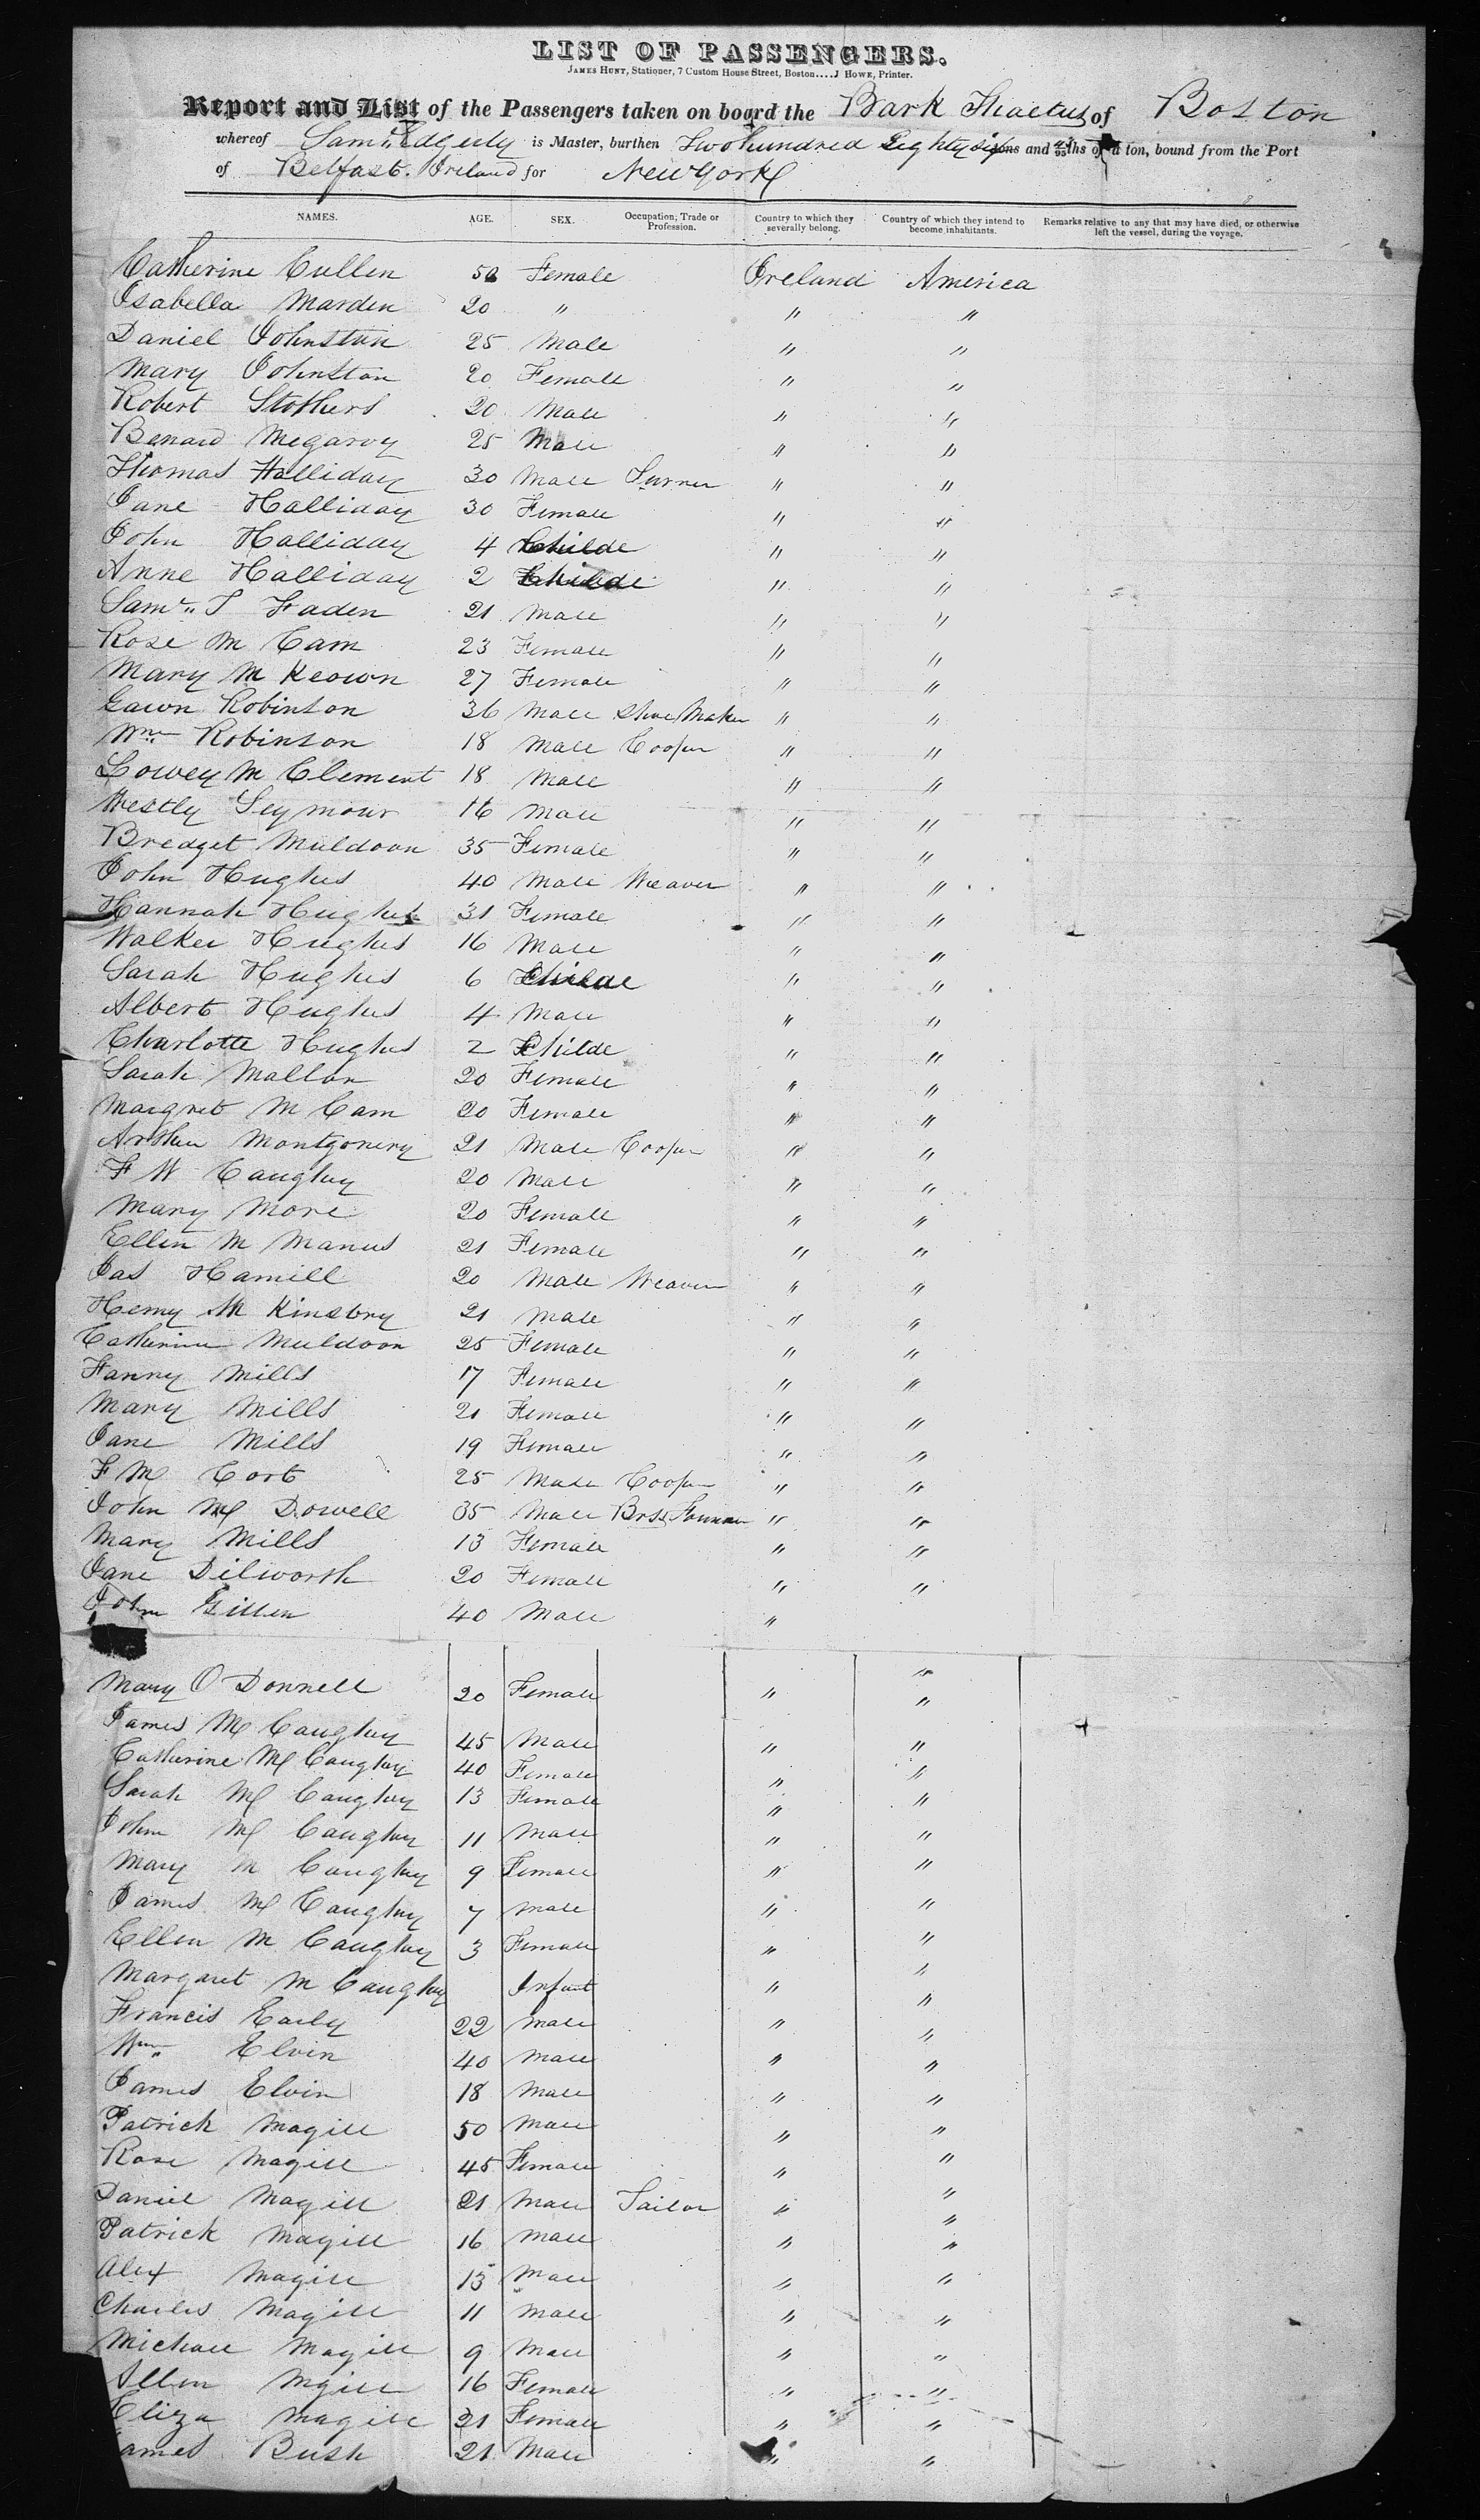 LIST OF PASSENGERS.
JAMES HUNT, Stationer, 7 Custom House Street, Boston....J HOWE, Printer.
Report and List of the Passengers taken on board the Bark of Boston
whereof Saml. Edgerly is Master, burthen Two hundred Eighty six tons and ths of a ton, bound from the Port
of Belfast. Ireland for New York
NAMES. AGE. SEX. Occupation; Trade or Profession. Country to which they severally belong. Country of which they intend to become inhabitants. Remarks relative to any that may have died, or otherwise left the vessel, during the voyage.
Catherine Cullen Female Ireland America
Isabella Marden 20 " " "
Daniel Johnston 25 Male " "
Mary Johnston 20 Female " "
Robert Stothers 20 Male " "
Benard Megarvy 25 Male " "
Thomas Halliday 30 Male Turner " "
Jane Halliday 30 Female " "
John Halliday 4 Childe " "
Anne Halliday 2 Childe " "
Saml. Faden 21 Male " "
Rose M Cam 23 Female " "
Mary M Keown 27 Female " "
Gawn Robinson 36 Male Shoe Maker " "
Wm. Robinson 18 Male Cooper " "
Lowey M Clement 18 Male " "
Westly Seymour 16 Male " "
Bredget Muldoon 35 Female " "
John Hughes 40 Male Weaver " "
Hannah Hughes 31 Female " "
Walker Hughes 16 Male " "
Sarah Hughes 6 Childe " "
Albert Hughes 4 Male " "
Charlotte Hughes 2 Childe " "
Sarah Mallon 20 Female " "
Margret M Cam 20 Female " "
Arther Montgomery 21 Male Cooper " "
F W Caughey 20 Male " "
Mary More 20 Female " "
Ellen M Manus 21 Female " "
Jas Hamill 20 Male Weaver " "
Henry M Kinstry 21 Male " "
Catherine Muldoon 25 Female " "
Fanny Mills 17 Female " "
Mary Mills 21 Female " "
Jane Mills 19 Female " "
F Mc Cort 25 Male Cooper " "
John Mc Dowell 35 Male Brss Founder " "
Mary Mills 13 Female " "
Jane Dilworth 20 Female " "
John Gillen 40 Male " "
Mary O Donnell 20 Female " "
James Mc Caughey 45 Male " "
Catherine Mc Caughey 40 Female " "
Sarah Mc Caughey 13 Female " "
John Mc Caughey 11 Male " "
Mary M Caughey 9 Female " "
James Mc Caughey 7 Male " "
Ellen M Caughey 3 Female " "
Margaret M Caughey Infant " "
Francis Early 22 Male " "
Wm. Elvin 40 Male " "
James Elvin 18 Male " "
Patrick Magill 50 Male " "
Rose Magill 45 Female " "
Daniel Magill 21 Male Tailor " "
Patrick Magill 16 Male " "
Alex Magill 13 Male " "
Charles Magill 11 Male " "
Michael Magill 9 Male " "
Allen Mgill 16 Female " "
Eliza Magill 21 Female " "
James Bush 21 Male " "